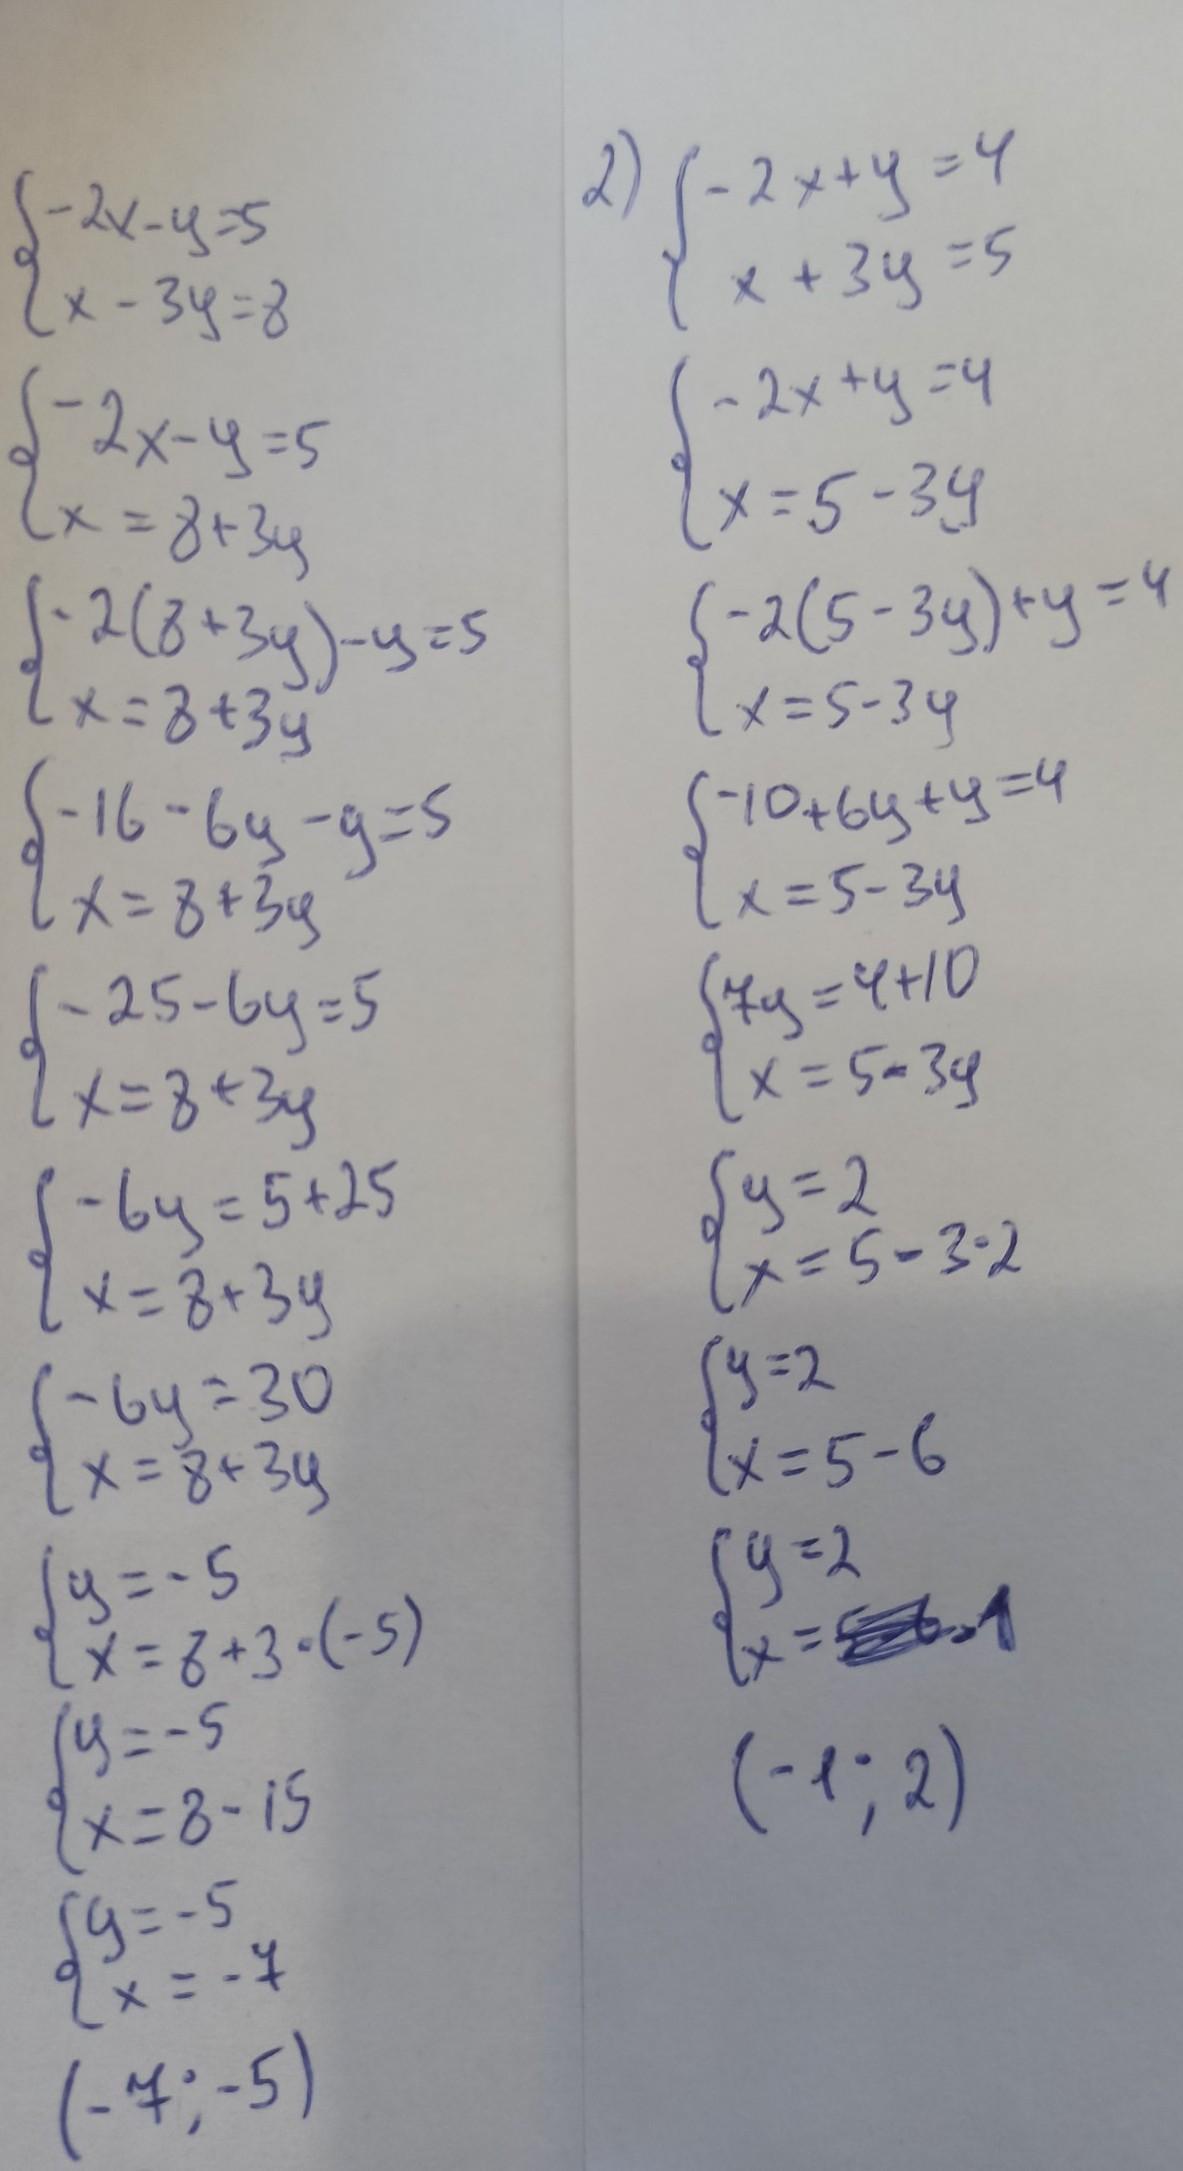 -2x-y=5
x-3y=8
-2x-y=5
x=8+3y
-2(8+3y)-y=5
x=8+3y
-16-6y-y=5
x=8+3y
-25-6y=5
x=8+3y
-6y=5+25
x=8+3y
-6y=30
x=8+3y
y=-5
x=8+3·(-5)
y=-5
x=8-15
y=-5
x=-7
(-7;-5)
2) -2x+y=4
x+3y=5
-2x+y=4
x=5-3y
-2(5-3y)+y=4
x=5-3y
-10+6y+y=4
x=5-3y
7y=4+10
x=5-3y
y=2
x=5-3·2
y=2
x=5-6
y=2
x=-1
(-1;2)